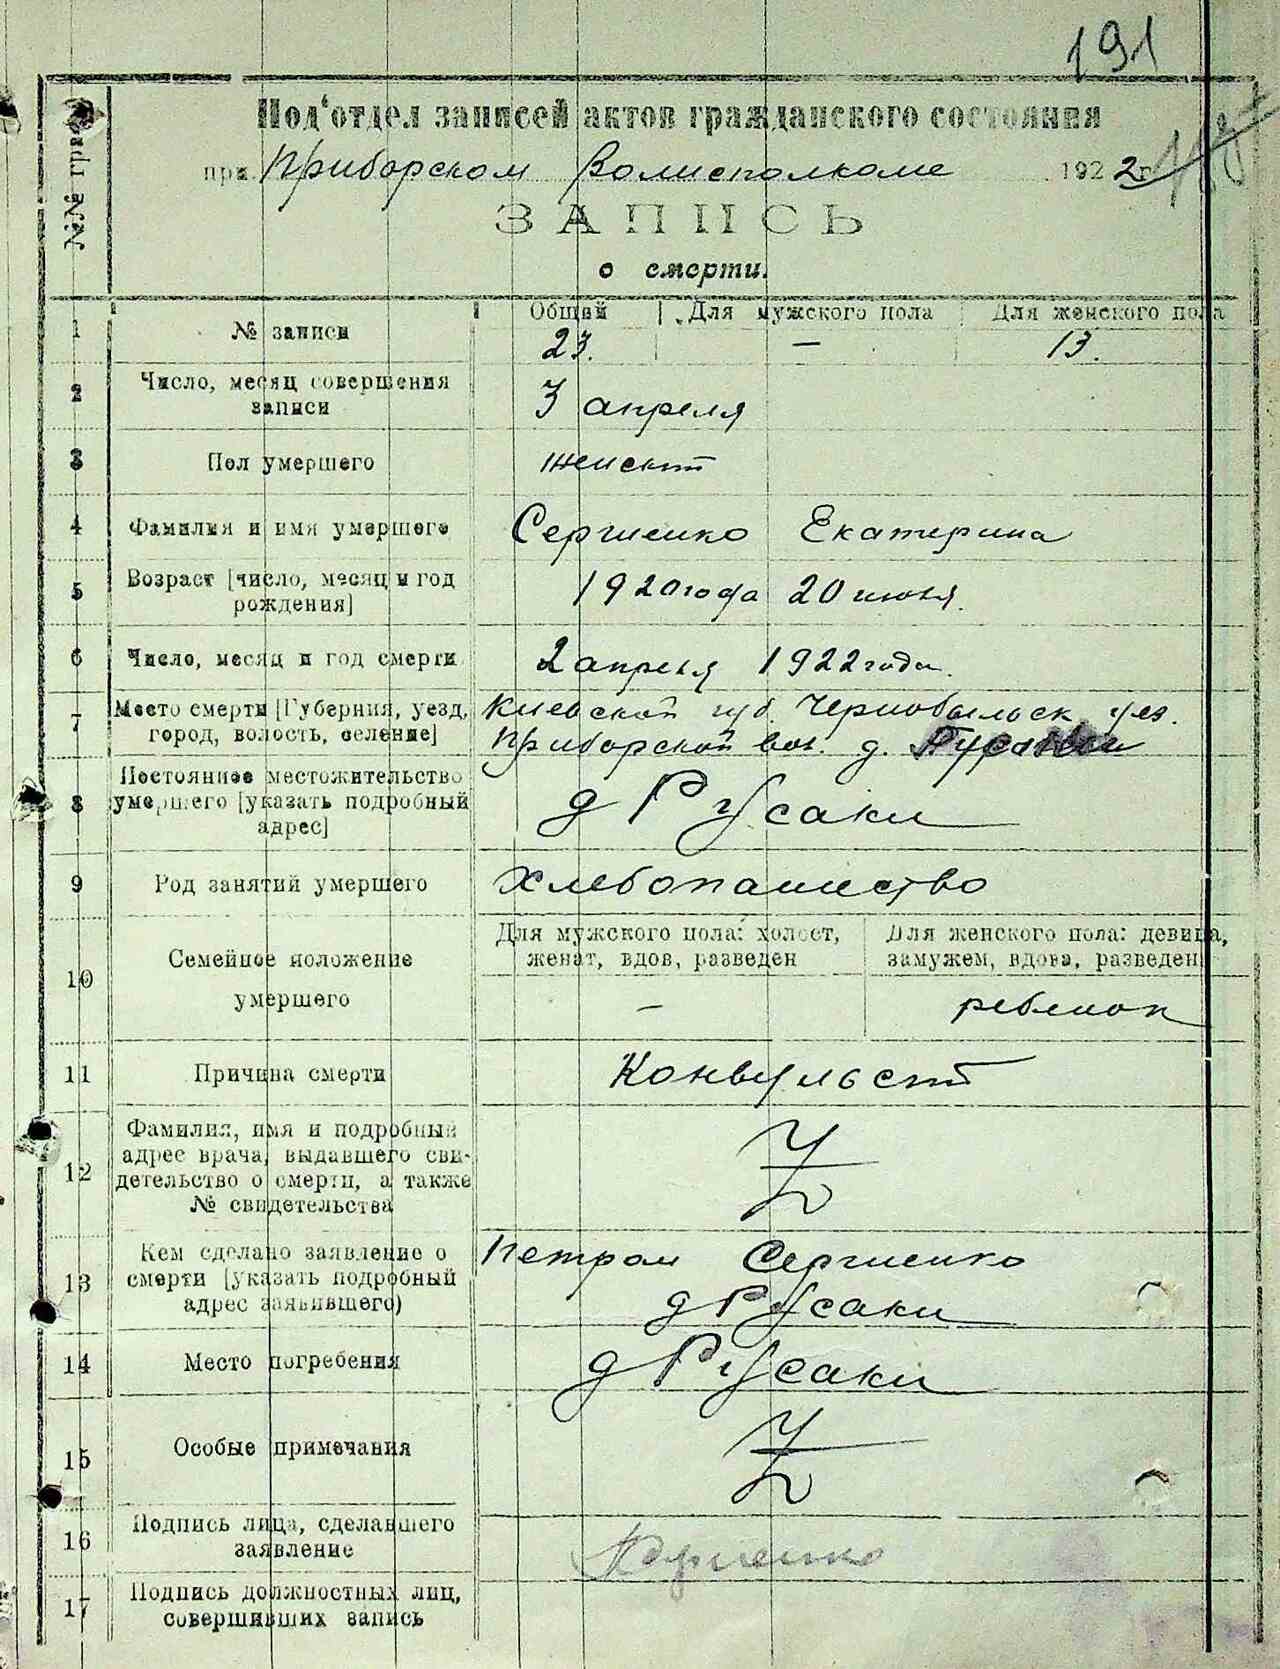 191
Под'отдел записей актов гражданского состояния
№№ гра
при Приборском Волисполкоме 1922 г.
ЗАПИСЬ
о смерти.
1 № записи Общий Для мужского пола Для женского пола
23. — 13.
2 Число, месяц совершения
записи
3 апреля
3 Пол умершего женский
4 Фамилия и имя умершего Сергиенко Екатерина
5 Возраст [число, месяц и год
рождения]
1920 года 20 июня.
6 Число, месяц и год смерти 2 апреля 1922 года.
7 Место смерти [Губерния, уезд,
город, волость, селение]
Киевской губ. Чернобыльск уез.
Приборской вол. д.
8 Постоянное местожительство
умершего [указать подробный
адрес]
д Русаки
9 Род занятий умершего Хлебопашество
10 Семейное положение
умершего
Для мужского пола: холост,
женат, вдов, разведен
Для женского пола: девица,
замужем, вдова, разведен
— ребенок
11 Причина смерти Конвульсии
12 Фамилия, имя и подробный
адрес врача, выдавшего сви-
детельство о смерти, а также
№ свидетельства
13 Кем сделано заявление о
смерти [указать подробный
адрес заявившего)
Петром Сергиенко
д Русаки
14 Место погребения д Русаки
15 Особые примечания
16 Подпись лица, сделавшего
заявление
17 Подпись должностных лиц,
совершивших запись